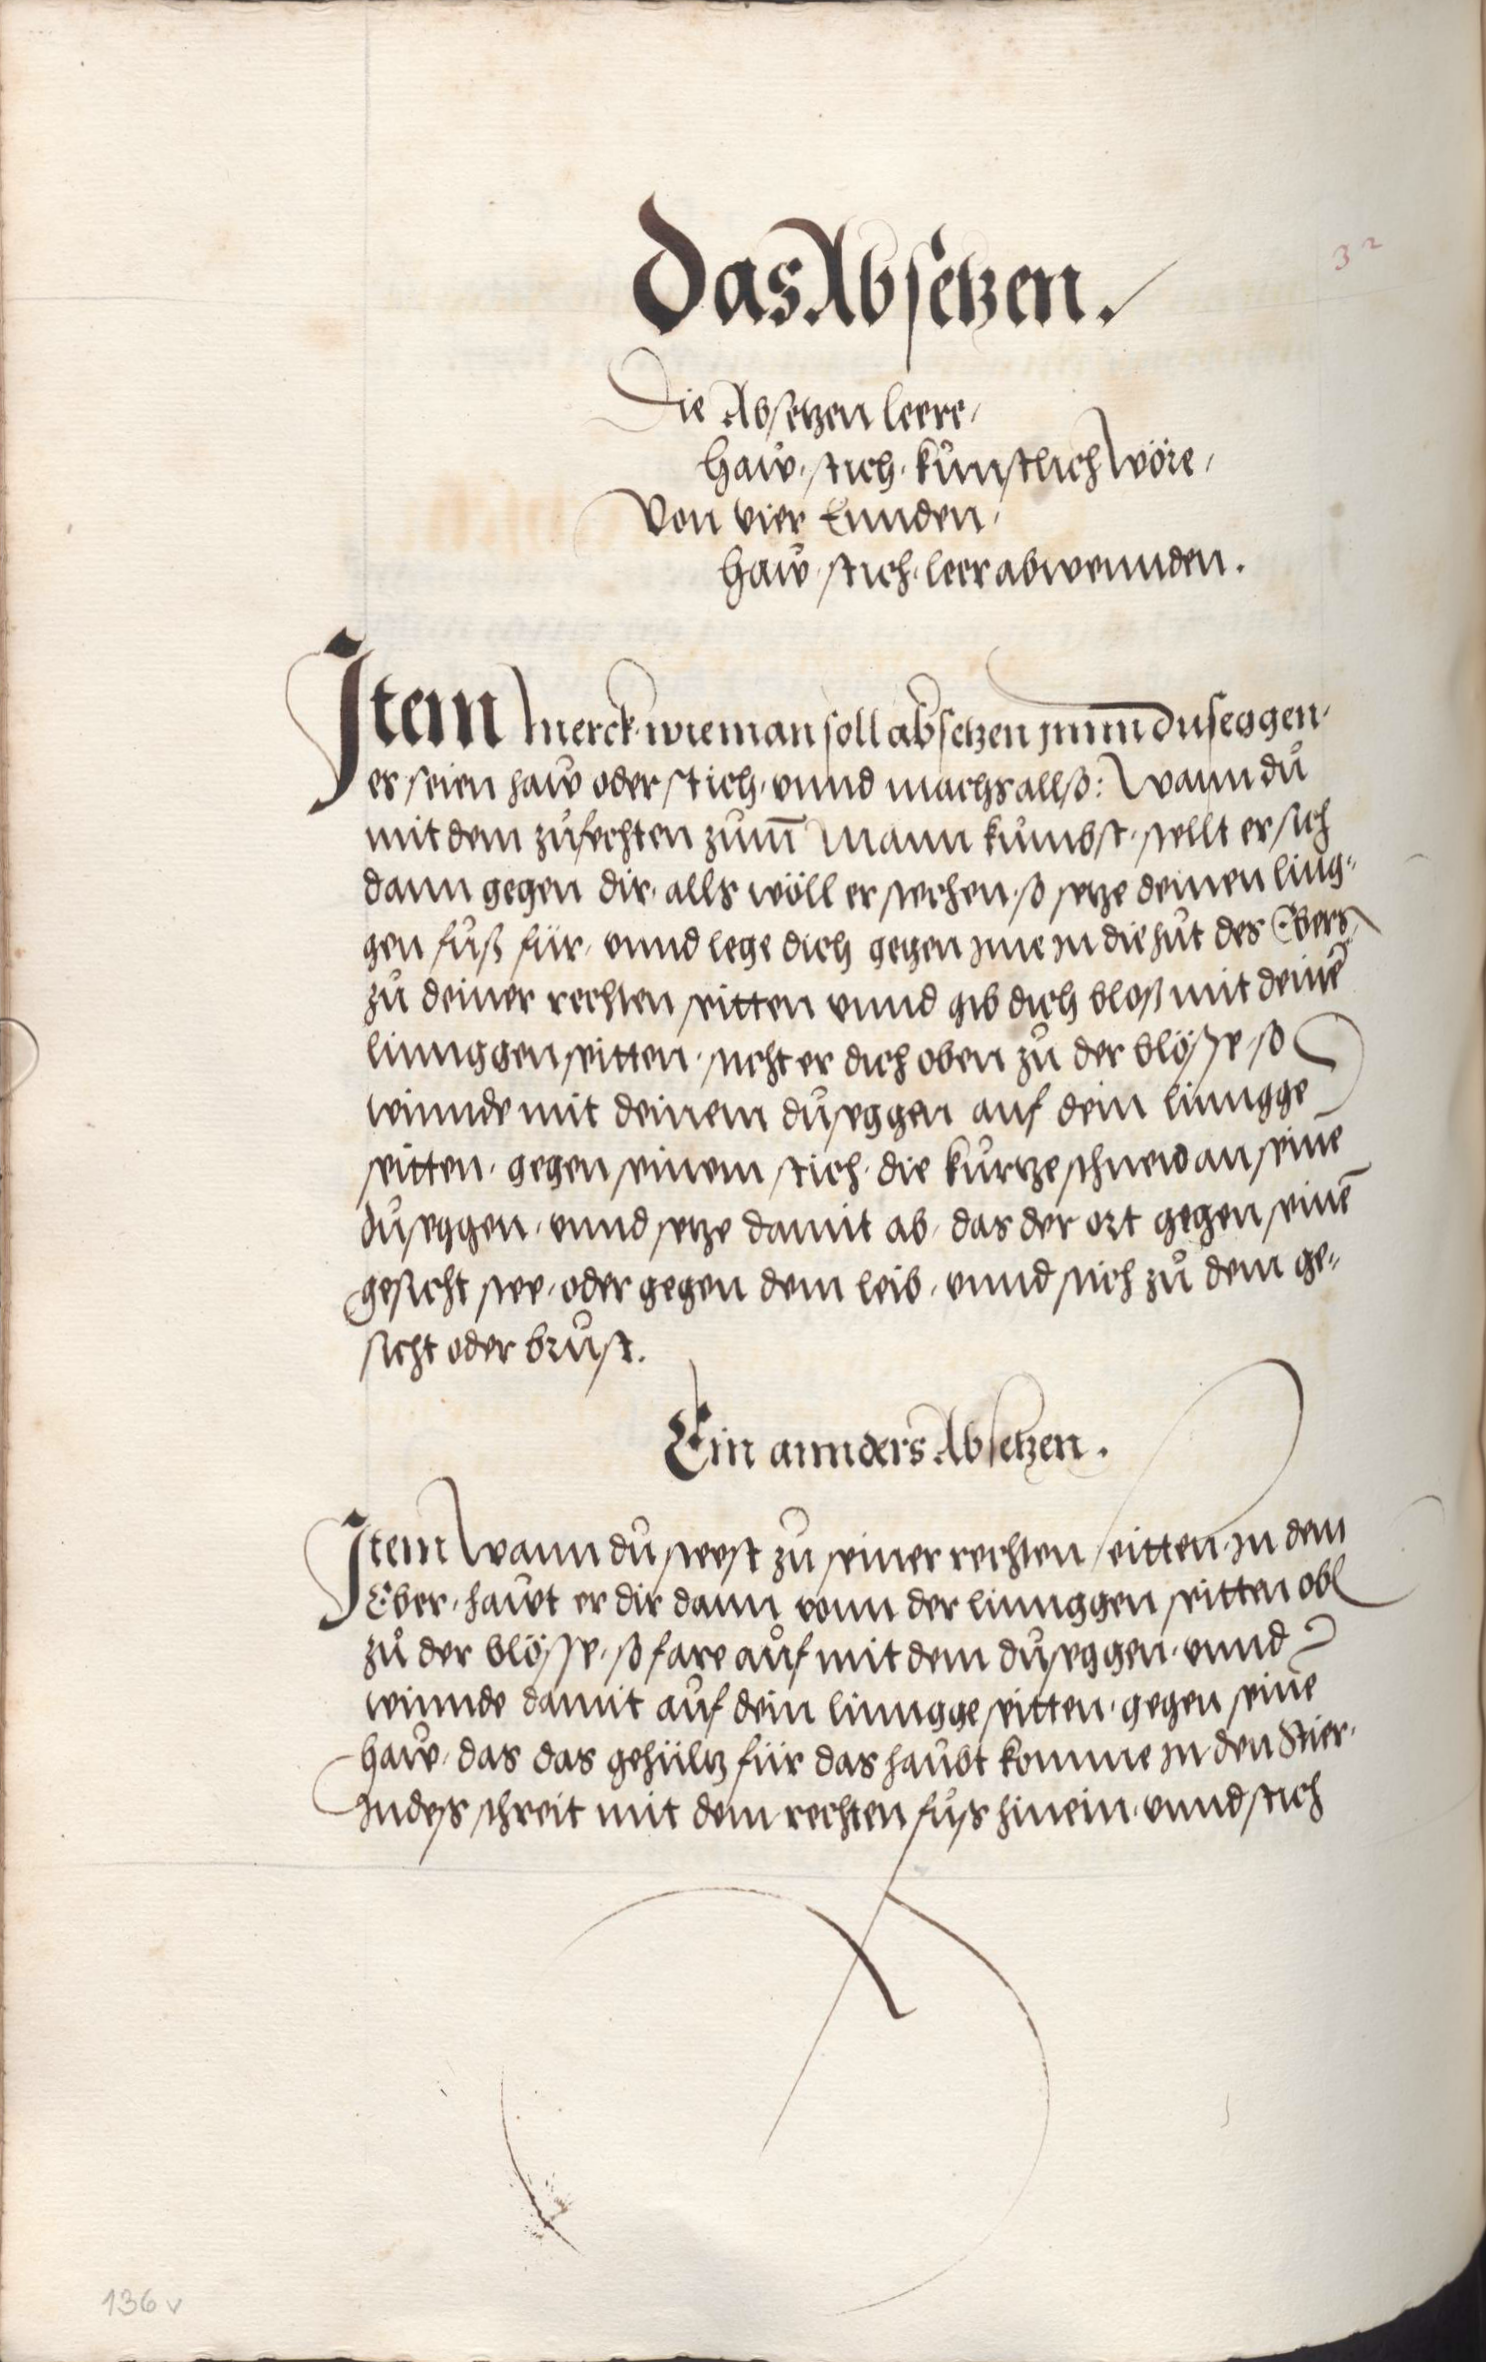 32
Das Absetzen.
Die Absetzen leere,
Haw, stich, künstlich wöre,
Von vier Ennden,
Haw, stich, leer abwennden.
Item merck, wie man soll absetzen jnnm̄ duseggen,
es seien haw oder stich, vnnd machs allß: Wann dů
mit dem zůfechten zum̄ Mann kůmbst, stellt er sich
dann gegen dir, alls wöll er stechen, so setze deinen ling-
gen fůß für, vnnd lege dich gegen jme jn die hůt des Ebers
zů deiner rechten seitten vnnd gib dich bloß mit deinē
linnggen seitten, sticht er dich oben zů der blösse, so
winnde mit deinem důseggen auf dein linngge
seitten, gegen seinem stich, die kůrtze schneid an seinē
důseggen, vnnd setze damit ab, das der ort gegen seinē
gesicht stee, oder gegen dem leib, vnnd stich zů dem ge-
sicht oder brůst.
Ein annders Absetzen.
Item Wann dů steest zů seiner rechten seitten, jn dem
Eber, hawt er dir dann vonn der linnggen seitten obl
zů der blösse, so fare aůf mit dem důseggen, vnnd
winnde damit aůf dein linngge seitten, gegen seinē
haw, das das gehültz für das haůbt komme jn den Stier,
Indess schreit mit dem rechten fůss hinein, vnnd stich
136v